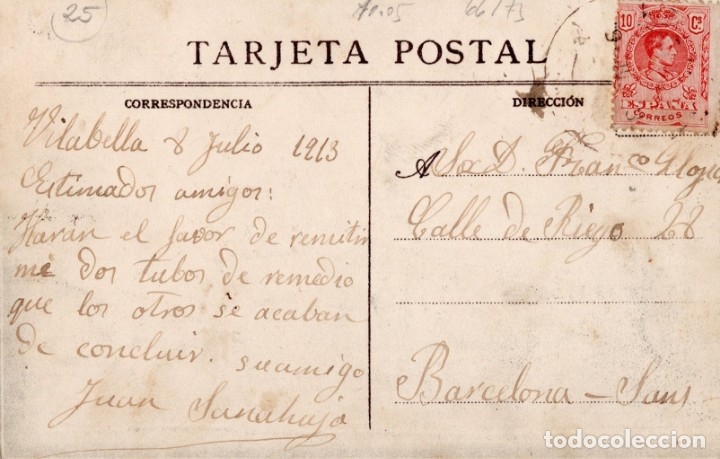 25
66/73
TARJETA POSTAL
10 Cs
ESPAÑA
CORREOS
CORRESPONDENCIA
DIRECCIÓN
Vilabella 8 Julio 1913
Estimados amigos:
Harán el favor de remitir
me dos tubos de remedio
que los otros se acaban
de concluir. su amigo
Juan Sanahuja
A Sr. D. Franco
Calle de Riego 28
Barcelona - Sans -
todocoleccion
todocoleccion.net